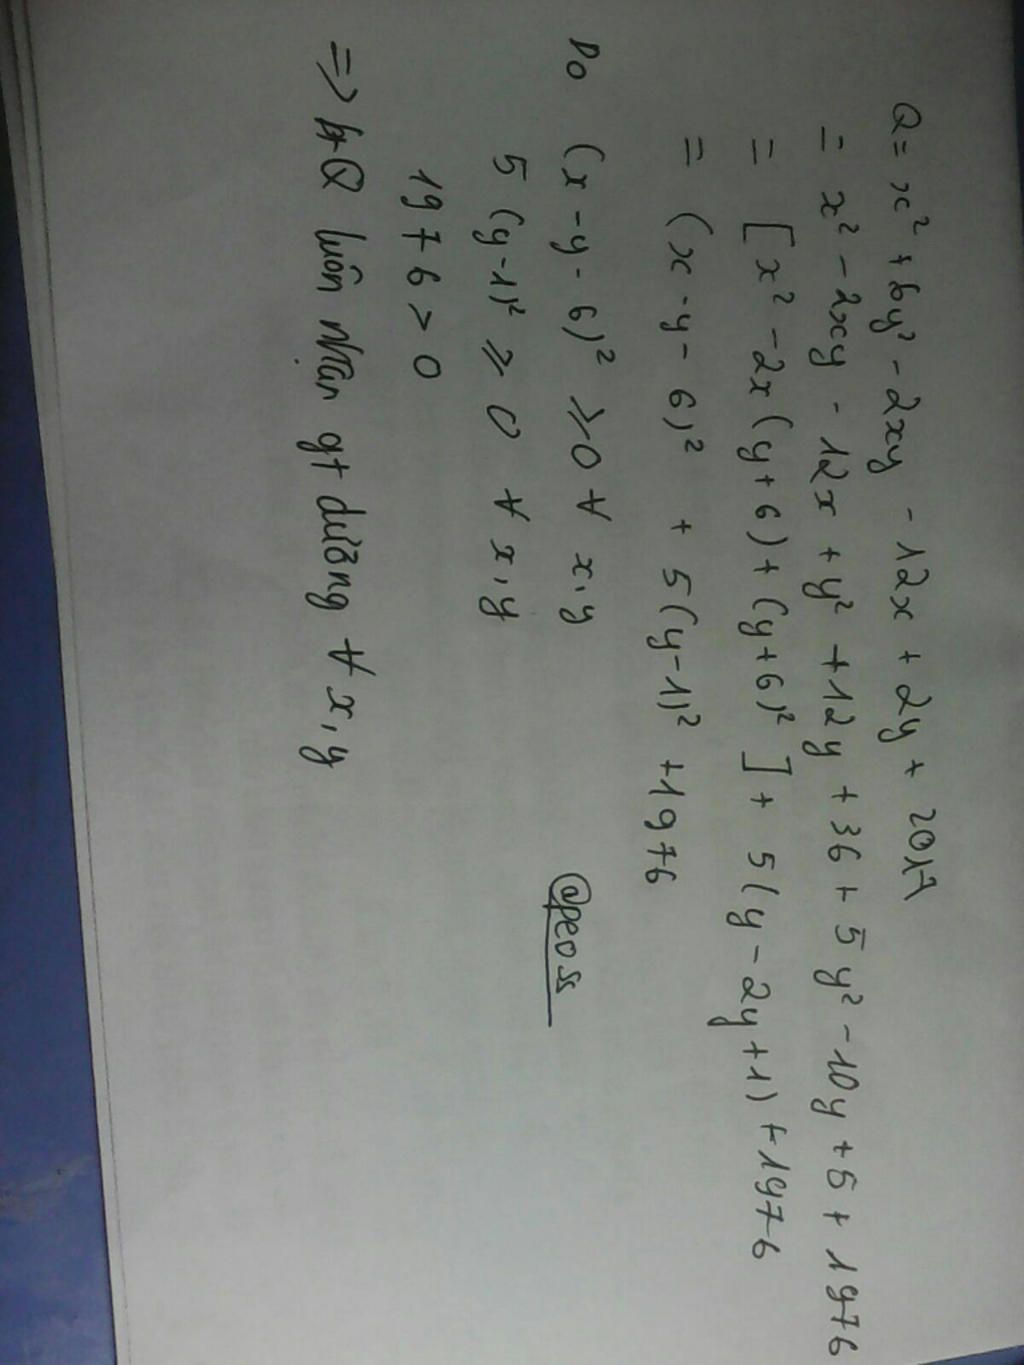 Q = x² + 6y² - 2xy - 12x + 2y + 2017
= x² - 2xy - 12x + y² + 12y + 36 + 5y² - 10y + 5 + 1976
= [x² - 2x(y+6) + (y+6)²] + 5(y - 2y + 1) + 1976
= (x - y - 6)² + 5(y-1)² + 1976
Do (x - y - 6)² ≥ 0 ∀ x, y
5(y-1)² ≥ 0 ∀ x, y
1976 > 0
@peoss
=> Q luôn nhận gt dương ∀ x, y